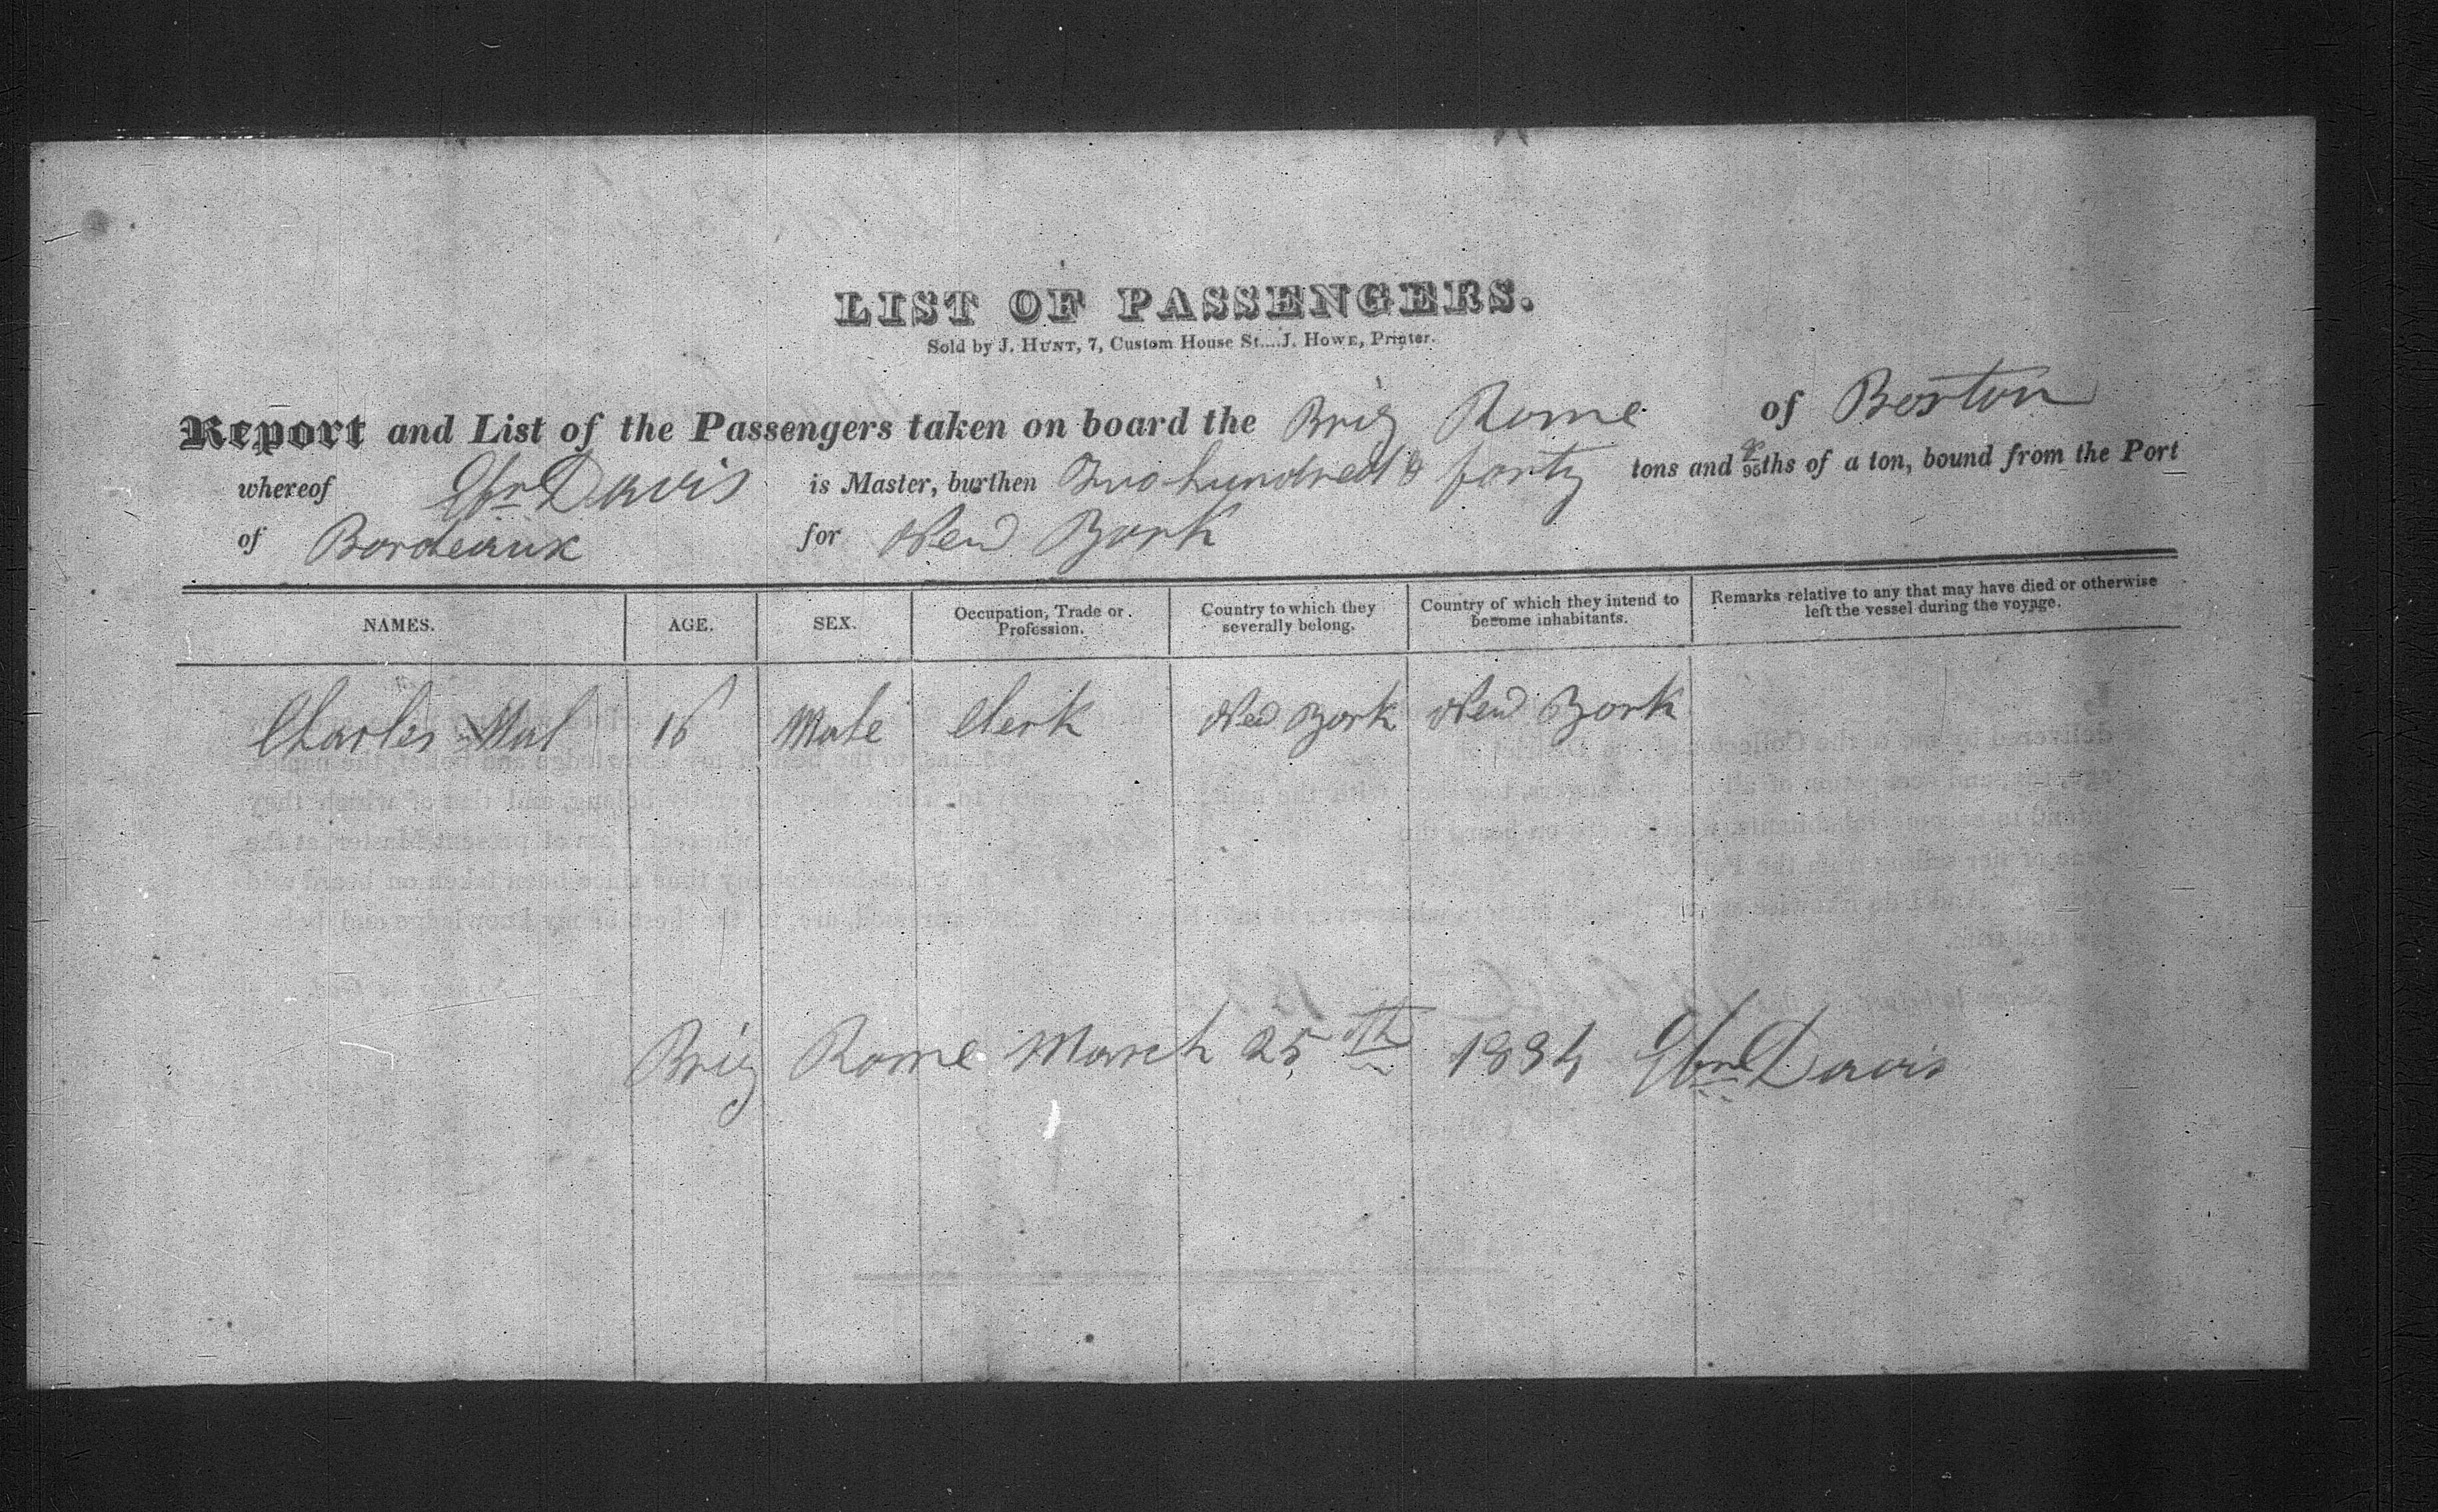 LIST OF PASSENGERS.
Sold by J. HUNT, 7, Custom House St....J. HOWE, Printer.
Report and List of the Passengers taken on board the Brig Rome of Boston
whereof Ebr Davis is Master, burthen Two hundred & forty tons and 95ths of a ton, bound from the Port
of Bordeaux for New York
NAMES. AGE. SEX. Occupation, Trade or Profession. Country to which they severally belong. Country of which they intend to become inhabitants. Remarks relative to any that may have died or otherwise left the vessel during the voyage.
Charles 16 Male Clerk New York New York
Brig Rome March 25th 1834 Ebr Davis